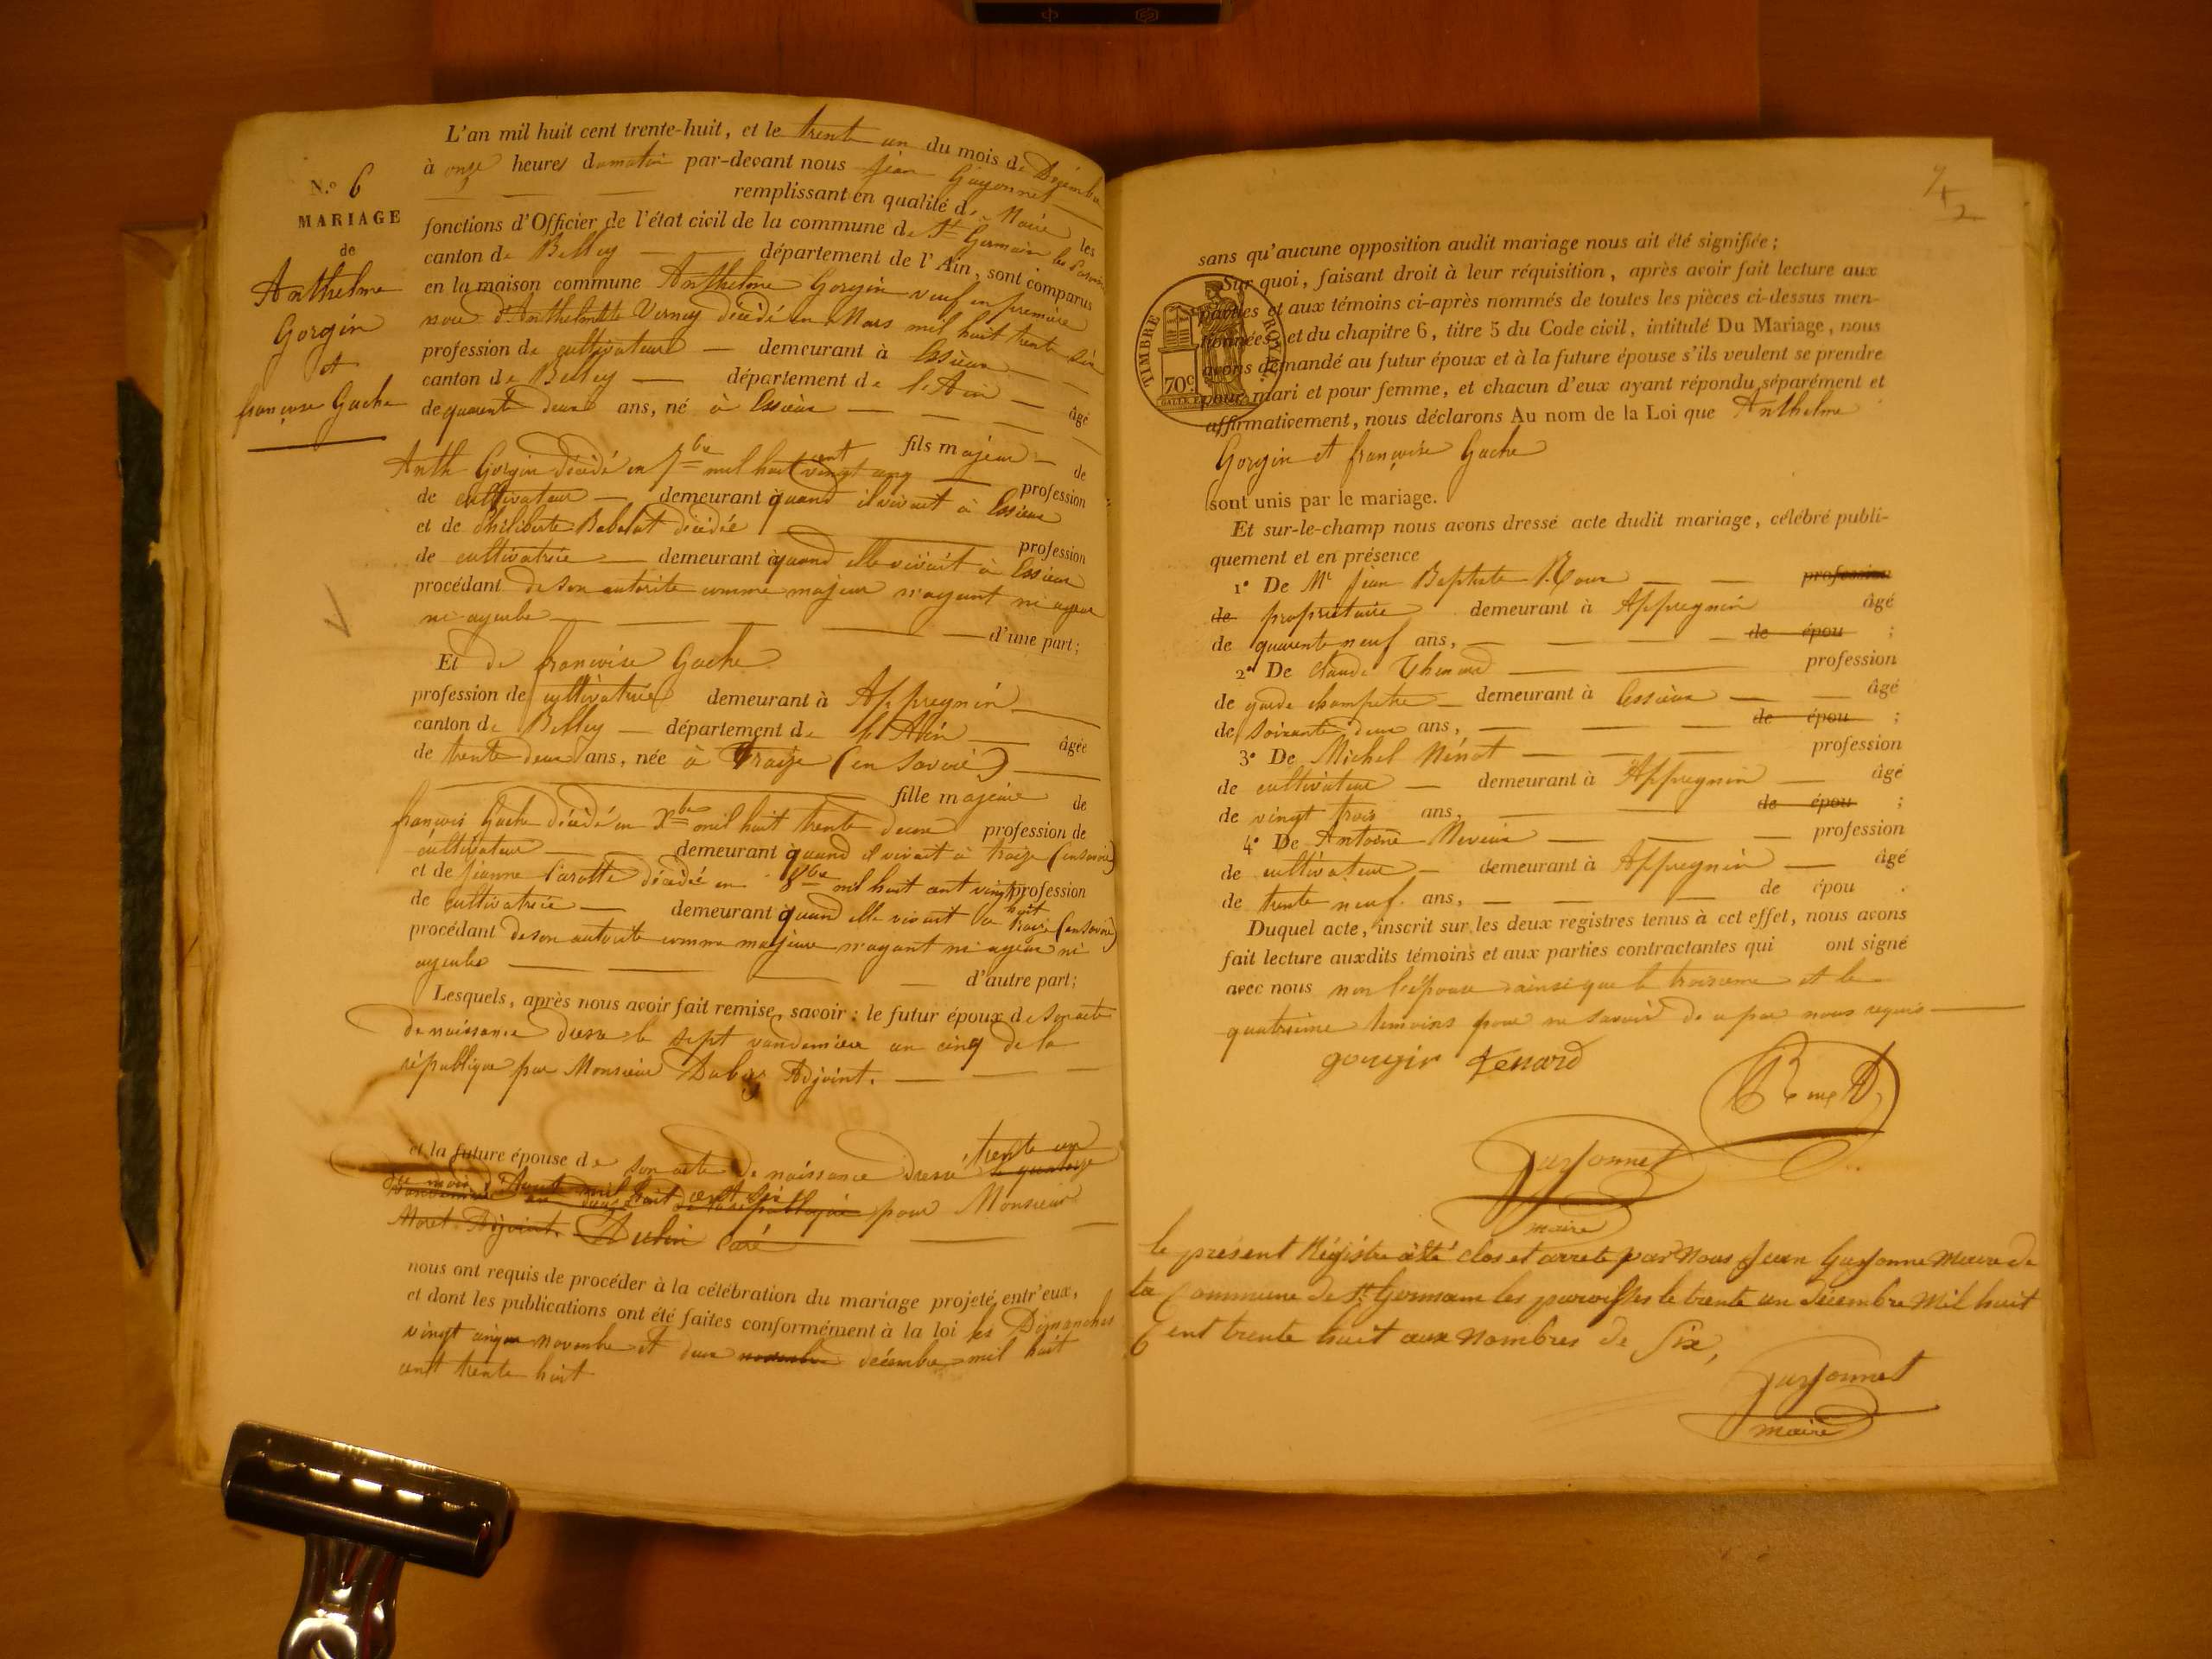 N.º 6
MARIAGE
de
Anthelme
Gorgin
et
françoise Gache
L'an mil huit cent trente-huit, et le trente un du mois de Décembre
à onze heures du matin par-devant nous Jean Guyonnet
remplissant en qualité de Maire les
fonctions d'Officier de l'état civil de la commune de St Germain les Paroisses
canton de Belley département de l'Ain, sont comparus
en la maison commune Anthelme Gorgin veuf en première
noce d'Anthelmette Verney décédé en Mars mil huit trente six
profession de cultivateur demeurant à Essieux
canton de Belley département de l'Ain âgé
de quarente deux ans, né à Essieux
fils majeur de
Anth Gorgin décédé en 7bre mil huit cent vingt cinq profession
de cultivateur demeurant à quand il vivait à Essieux
et de Philiberte Babolat décédée profession
de cultivatrice demeurant à quand elle vivait à Essieux
procédant de son autorité comme majeur n'ayant ni ayeux
ni ayeules d'une part;
Et de françoise Gache
profession de cultivatrice demeurant à Appregnin
canton de Belley département de l'Ain âgée
de trente deux ans, née à Traize (en Savoie)
fille majeure de
françois Gache décédé en Xbre mil huit trente deux profession de
cultivateur demeurant à quand il vivait à traize (en Savoie)
et de Jeanne Carotte décédée en 8bre mil huit cent vingt huit profession
de cultivatrice demeurant à quand elle vivait à traize (en Savoie)
procédant de son autorité comme majeure n'ayant ni ayeux ni
ayeules d'autre part;
Lesquels, après nous avoir fait remise, savoir : le futur époux de son acte
de naissance dressé le sept vandemiere an cinq de la
république par Monsieur Adjoint.
et la future épouse de son acte de naissance dressé trente un
le quatorze
du mois Aout mil huit cent six par Monsieur
Moret Adjoint. Aubin Curé
nous ont requis de procéder à la célébration du mariage projeté entr'eux,
et dont les publications ont été faites conformément à la loi les Dimanches
vingt cinq novembre et deux novembre décembre mil huit
cent trente huit
sans qu'aucune opposition audit mariage nous ait été signifiée ;
Sur quoi, faisant droit à leur réquisition, après avoir fait lecture aux
parties et aux témoins ci-après nommés de toutes les pièces ci-dessus men-
tionnées, et du chapitre 6, titre 5 du Code civil, intitulé Du Mariage, nous
avons demandé au futur époux et à la future épouse s'ils veulent se prendre
pour mari et pour femme, et chacun d'eux ayant répondu séparément et
affirmativement, nous déclarons Au nom de la Loi que Anthelme
Gorgin et françoise Gache
sont unis par le mariage.
Et sur-le-champ nous avons dressé acte dudit mariage, célébré publi-
quement et en présence
1º De Mr Jean Baptiste Roux profession
de propriétaire demeurant à Appregnin âgé
de quarente neuf ans, de épou ;
2º De Claude Thenard profession
de garde champetre demeurant à Essieux âgé
de soixante deux ans, de épou ;
3º De Michel Nénot profession
de cultivateur demeurant à Appregnin âgé
de vingt trois ans, de épou ;
4º De Antoine profession
de cultivateur demeurant à Appregnin âgé
de trente neuf. ans, de épou .
Duquel acte, inscrit sur les deux registres tenus à cet effet, nous avons
fait lecture auxdits témoins et aux parties contractantes qui ont signé
avec nous non l'épouse ainsi que le troisieme et le
quatrieme temoins pour ne savoir de ce par nous requis
gorgin tenard
Guyonnet
maire
le présent Régistre à été clos et arreté par Nous Jean Guyonne Maire de
la Commune de St Germain les paroisses le trente un décembre Mil huit
Cent trente huit aux Nombres de Six,
Guyonnet
maire
TIMBRE ROYAL
70c.